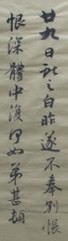 廿九日獻之白昨遂不奉別悵
恨深體中復何如弟甚頓